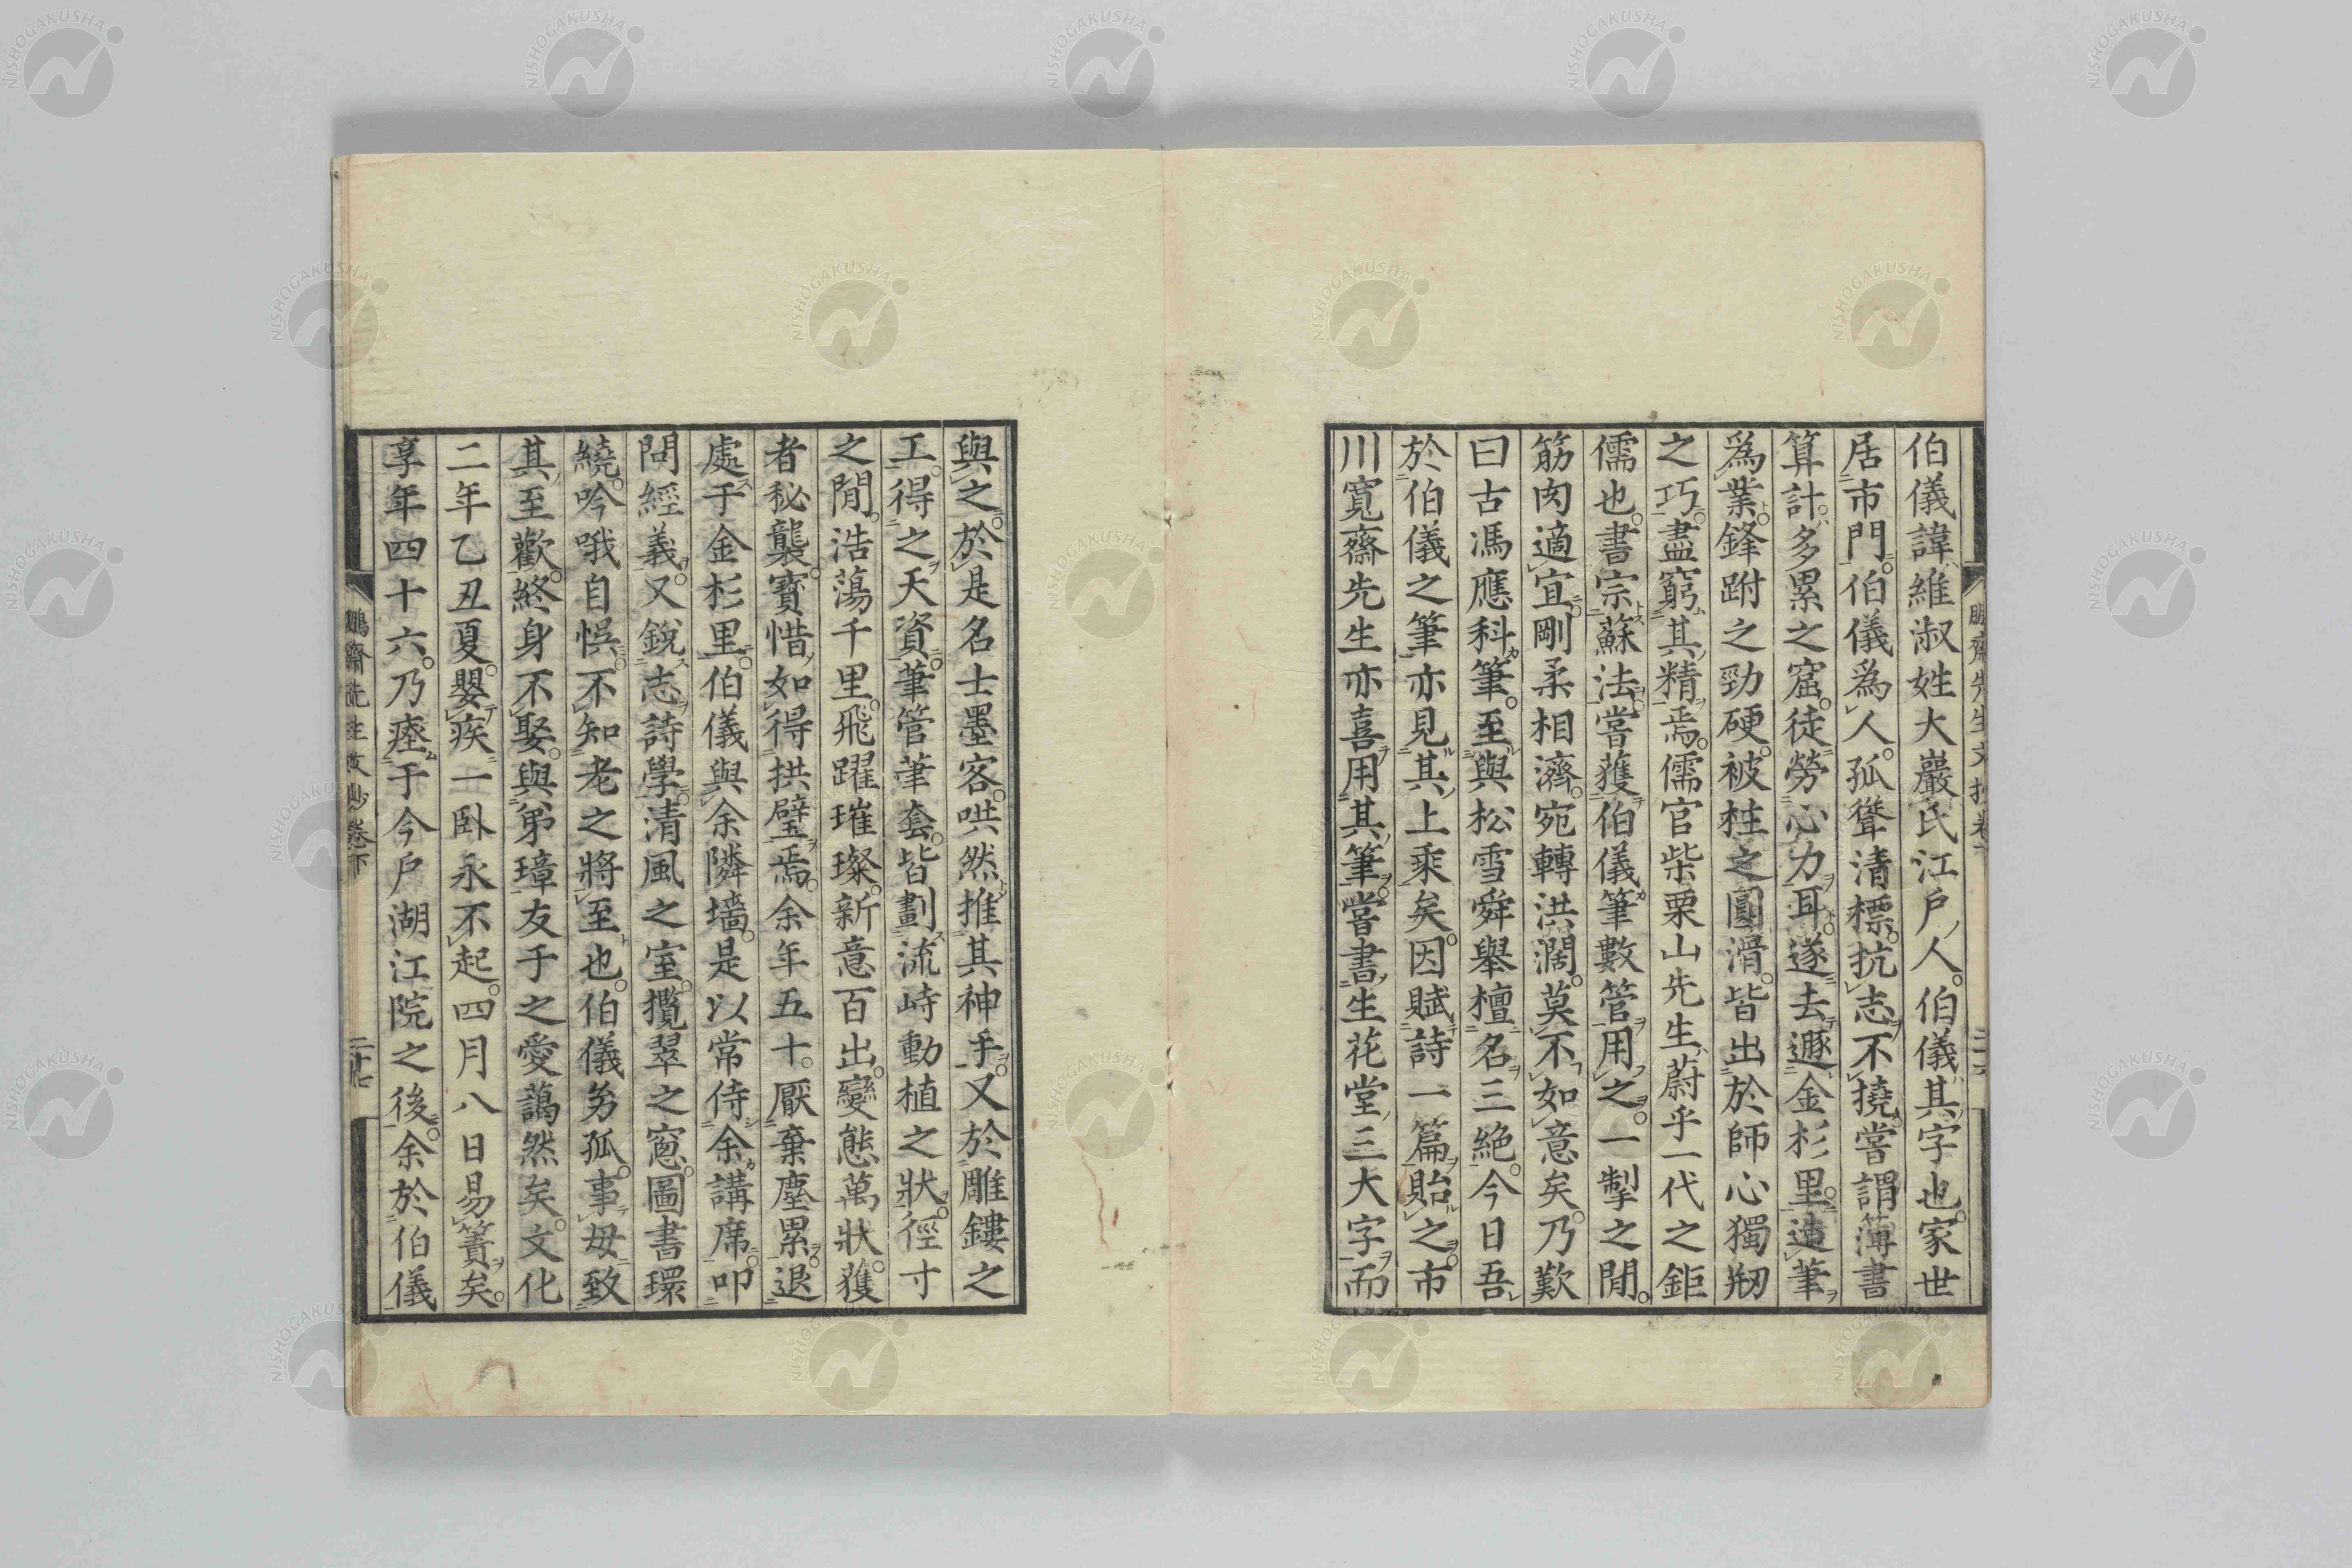 伯儀諱維淑姓大巖氏江戶人。伯儀其字也。家世
居市門。伯儀爲人。孤聳清標。抗志不撓。嘗謂簿書
算計。多累之窟。徒勞心力耳。遂去遯金杉里。造筆
爲業。鋒跗之勁硬。被柱之圓滑。皆出於師心獨刱
之巧。盡窮其精焉。儒官柴栗山先生。蔚乎一代之鉅
儒也。書宗蘇法。嘗獲伯儀筆數管用之。一掣之閒。
筋肉適宜。剛柔相濟。宛轉洪濶。莫不如意矣。乃歎
曰古馮應科筆。至與松雪舜舉檀名三絶。今日吾
於伯儀之筆。亦見其上乘矣。因賦詩一篇貽之。市
川寬齋先生亦喜用其筆。嘗書生花堂三大字而
與之。於是名士墨客。哄然推其神手。又於雕鏤之
工。得之天資。筆管筆套。皆劃流峙動植之狀。徑寸
之閒。浩蕩千里。飛躍璀璨。新意百出。變態萬狀。獲
者秘襲。寶惜如得拱璧焉。余年五十。厭棄塵累。退
處于金杉里。伯儀與余隣墻。是以常侍余講席。叩
問經義。又銳志詩學。清風之室。攬翠之窻。圖書環
繞。吟哦自悞。不知老之將至也。伯儀㓜孤。事母致
其至歡。終身不娶。與弟璋友于之愛藹然矣。文化
二年乙丑夏。嬰疾一臥永不起。四月八日易簀矣。
享年四十六。乃瘞于今戶湖江院之後。余於伯儀
鵬齋先生文抄卷下
二十七